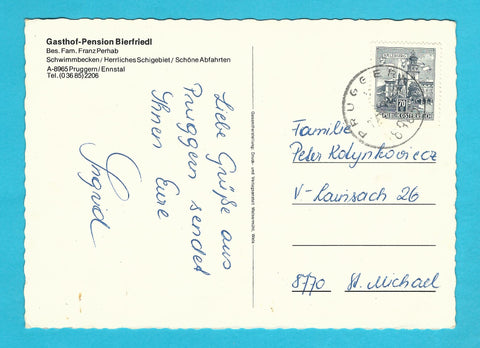 Gasthof-Pension Bierfriedl
Bes. Fam. Franz Perhab
Schwimmbecken / Herrliches Schigebiet / Schöne Abfahrten
A-8965 Pruggern / Ennstal
Tel. (0 36 85) 2206
Liebe Grüße aus
Pruggern sendet
Ihnen Eure
Ingrid
PRUGGERN
70
REPUBLIK ÖSTERREICH
Familie
Peter Kolynkoviecz
V-Lainsach 26
8770 St. Michael